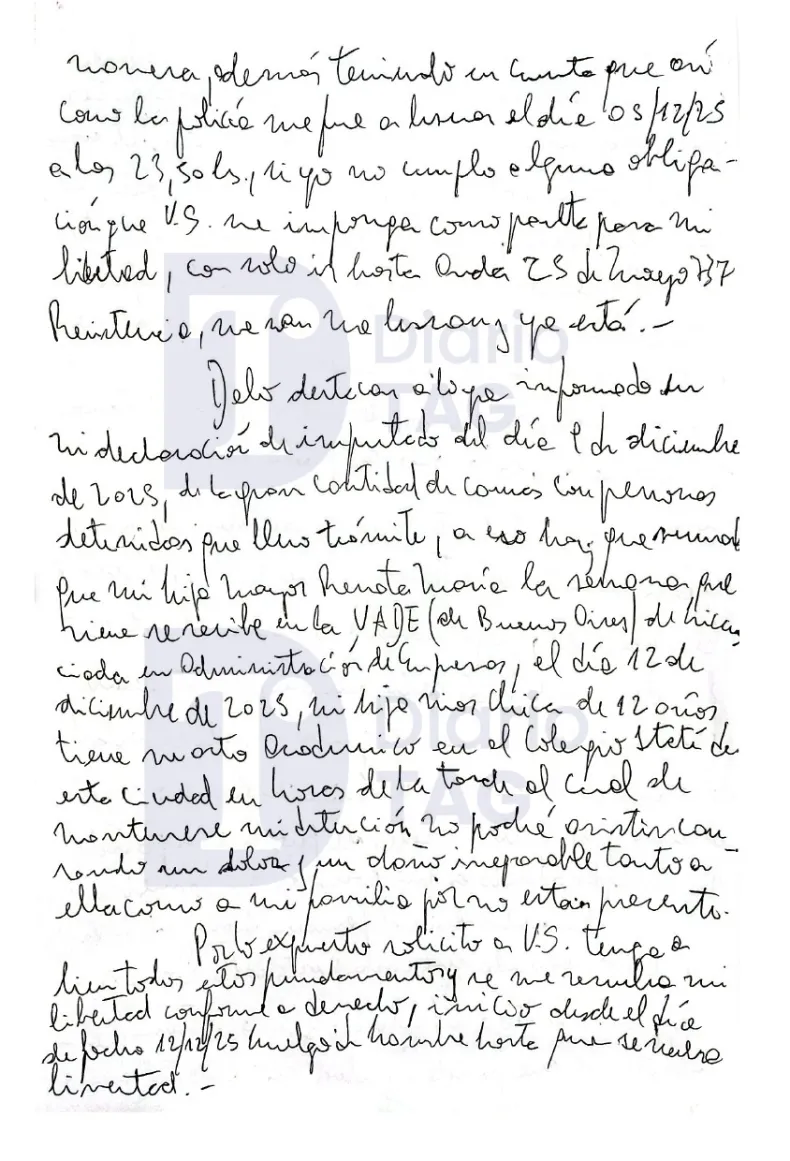 manera, además teniendo en cuenta que así
como la policía me fue a buscar el día 03/12/25
a las 23,30 hs., si yo no cumplo alguna obliga-
ción que V.S. me imponga como parte para mi
libertad, con solo ir hasta Avda 25 de Mayo 737
Resistencia, me van me buscan y ya está.-
Debo destacar a lo ya informado en
mi declaración de imputado del día 9 de diciembre
de 2025, de la gran cantidad de causas con personas
detenidas que llevo trámite, a eso hay que sumar
que mi hija mayor Renata María la semana que
viene se recibe en la UADE (de Buenos Aires) de licen
ciada en Administración de Empresas, el día 12 de
diciembre de 2025, mi hija mas chica de 12 años
tiene su acto Académico en el Colegio Itatí de
esta ciudad en horas de la tarde al cual de
mantenerse mi detención no podré asistir cau
sando un dolor y un daño irreparable tanto a
ella como a mi familia por no estar presente.
Por lo expuesto solicito a V.S. tenga a
bien todos estos fundamentos y se me resuelva mi
libertad conforme a derecho, inicio desde el día
de fecha 12/12/25 huelga de hambre hasta que se resuelva
libertad.-
Diario
TAG
Diario
TAG